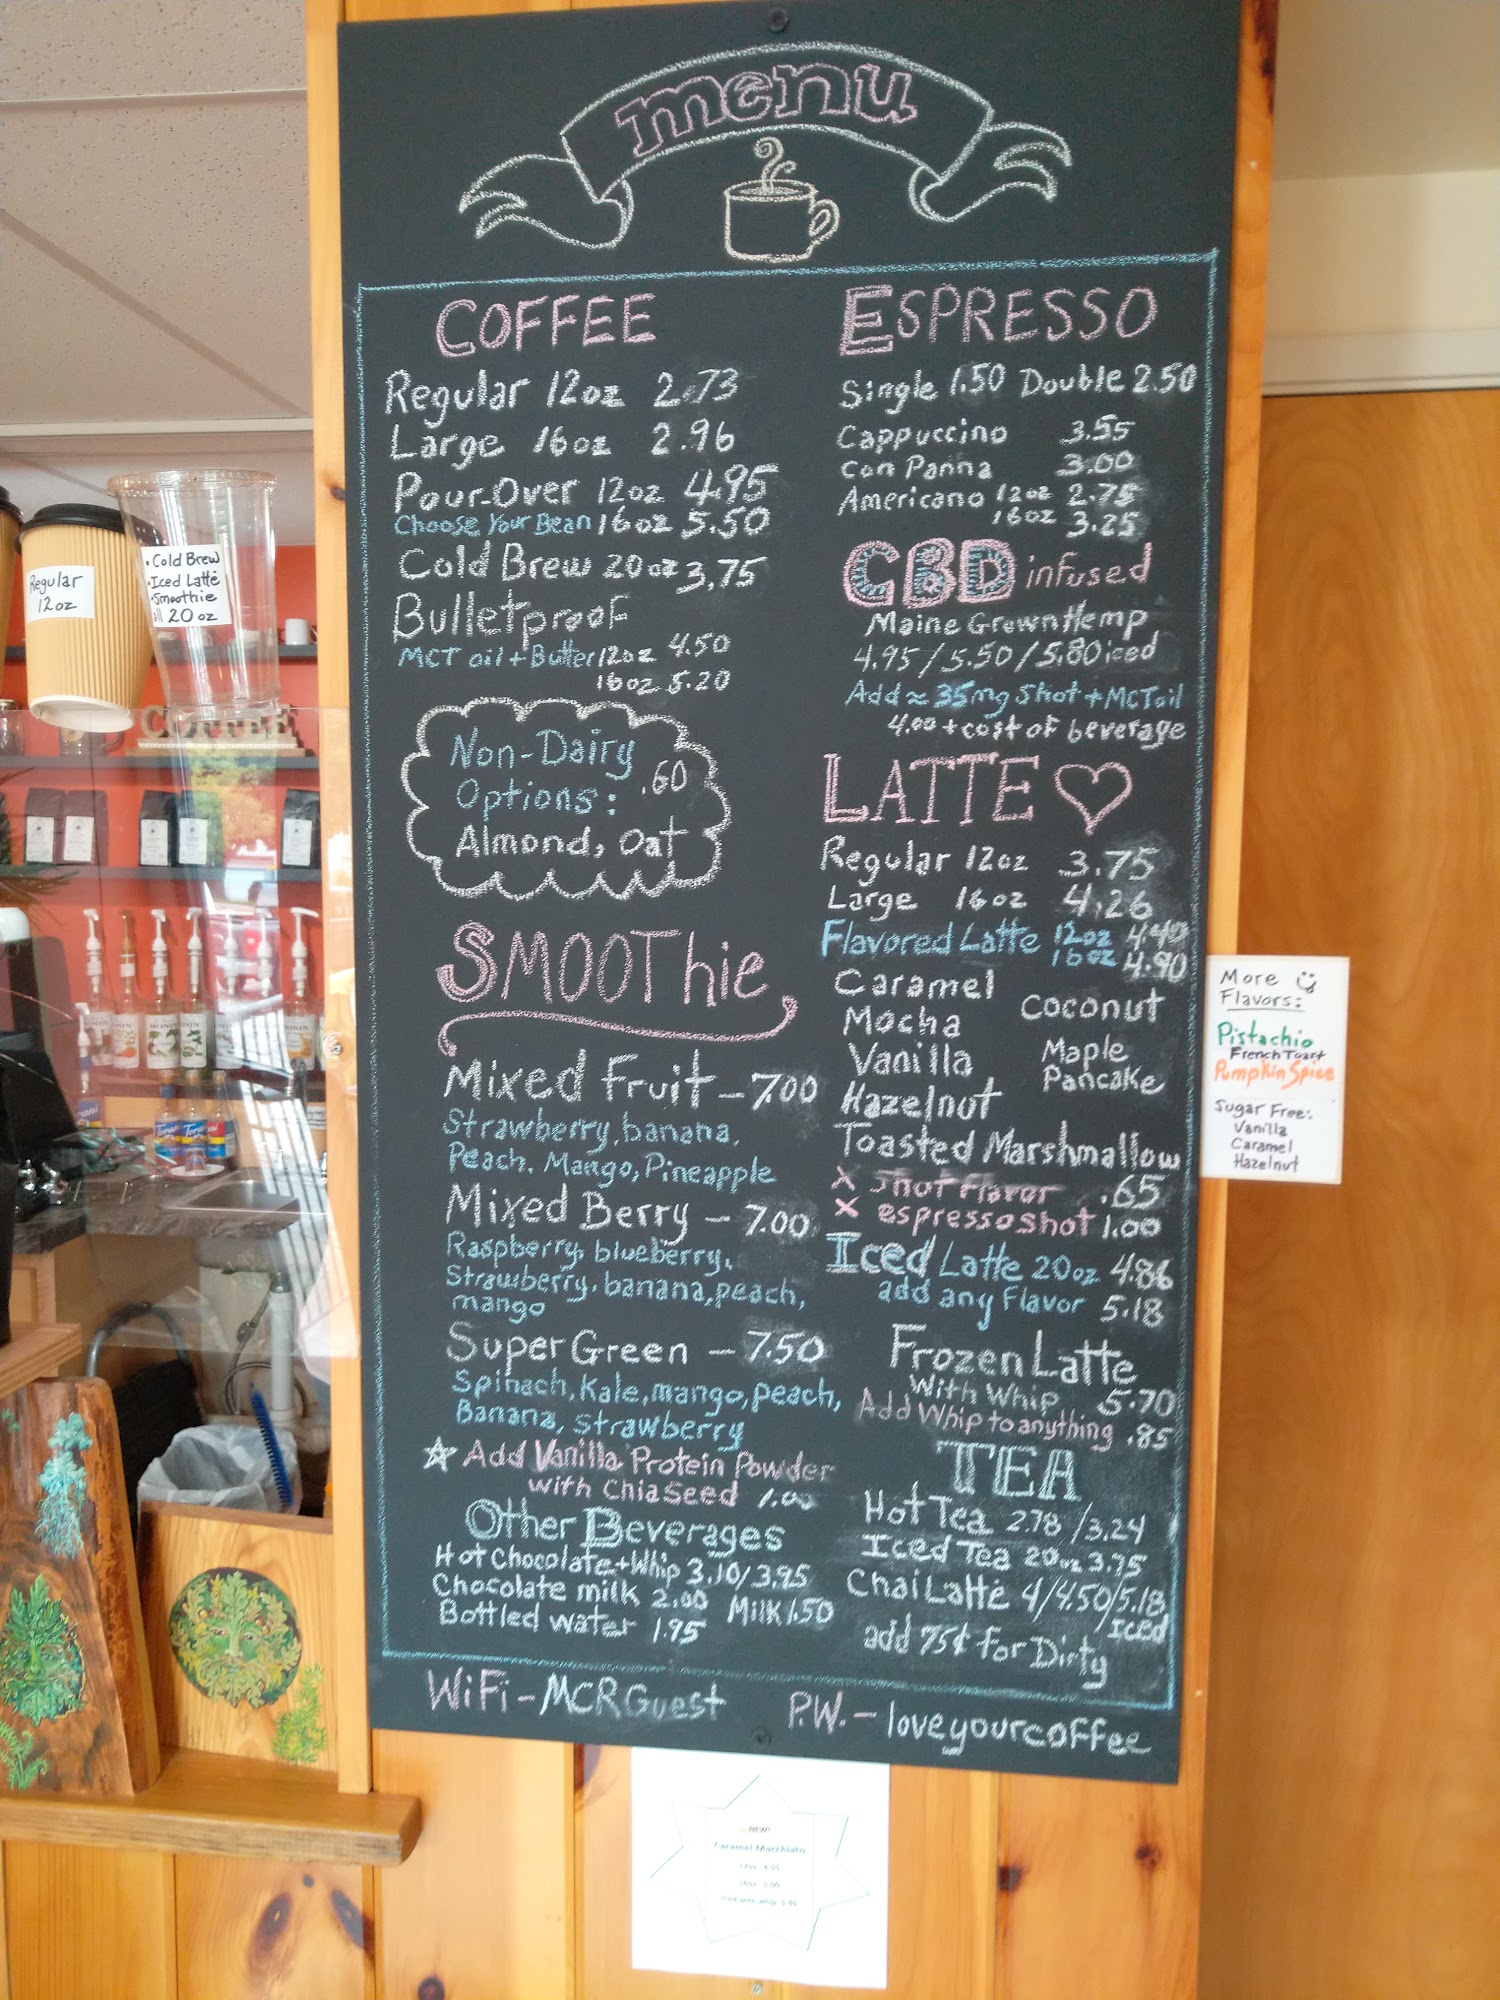 menu
COFFEE
Regular 12oz 2.73
Large 16oz 2.96
Pour-Over 12oz 4.95
Choose Your Bean 16oz 5.50
Cold Brew 20oz 3.75
Bulletproof
MCT oil + Butter 12oz 4.50
16oz 5.20
Non-Dairy
Options: .60
Almond, Oat
SMOOThie
Mixed Fruit - 7.00
Strawberry, banana,
Peach, Mango, Pineapple
Mixed Berry - 7.00
Raspberry, blueberry,
Strawberry, banana, peach,
mango
Super Green - 7.50
Spinach, Kale, mango, peach,
Banana, Strawberry
☆ Add Vanilla Protein Powder
with Chia Seed 1.00
Other Beverages
Hot Chocolate + Whip 3.10/3.95
Chocolate milk 2.00 Milk 1.50
Bottled water 1.95
ESPRESSO
Single 1.50 Double 2.50
Cappuccino 3.55
Con Panna 3.00
Americano 12oz 2.75
16oz 3.25
CBD infused
Maine Grown Hemp
4.95/5.50/5.80 iced
Add ≈ 35mg Shot + MCT oil
4.00 + cost of beverage
LATTE ♡
Regular 12oz 3.75
Large 16oz 4.26
Flavored Latte 12oz 4.40
16oz 4.90
Caramel
Mocha
Vanilla
Hazelnut
Coconut
Maple
Pancake
Toasted Marshmallow
X Shot Flavor .65
X espresso shot 1.00
Iced Latte 20oz 4.86
add any Flavor 5.18
Frozen Latte
With Whip 5.70
Add Whip to anything .85
TEA
Hot Tea 2.78/3.24
Iced Tea 20oz 3.75
Chai Latte 4/4.50/5.18
Iced
add 75¢ for Dirty
WiFi - MCRGuest P.W. - loveyourcoffee
More
Flavors:
Pistachio
French Toast
Pumpkin Spice
Sugar Free:
Vanilla
Caramel
Hazelnut
Regular
12oz
• Cold Brew
• Iced Latté
• Smoothie
all 20oz
COFFEE
NEW!
Caramel Macchiato